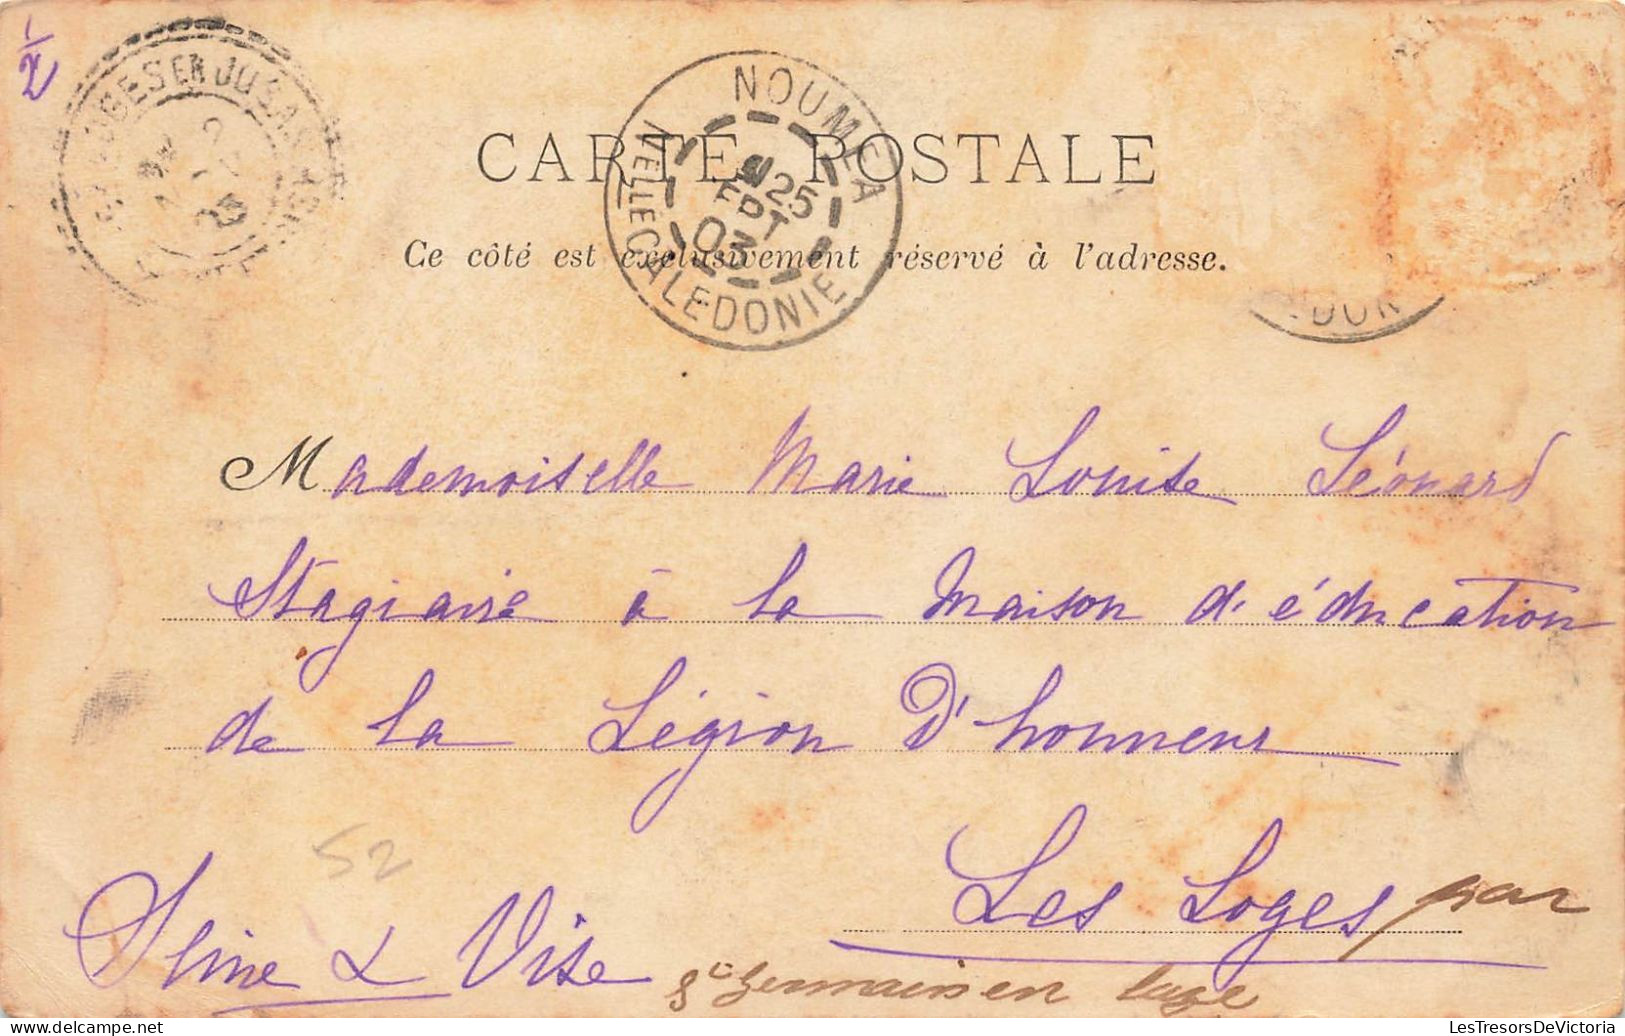 2/
LES LOGES EN JOSAS
NOUMEA
25
SEPT
03
NELLE CALEDONIE
CARTE POSTALE
Ce côté est exclusivement réservé à l'adresse.
Mademoiselle Marie Louise Léonard
Stagiaire à la Maison d'éducation
de la Légion D'honneur
52
Les Loges par
Seine & Oise St Germain en Laye
LesTresorsDeVictoria